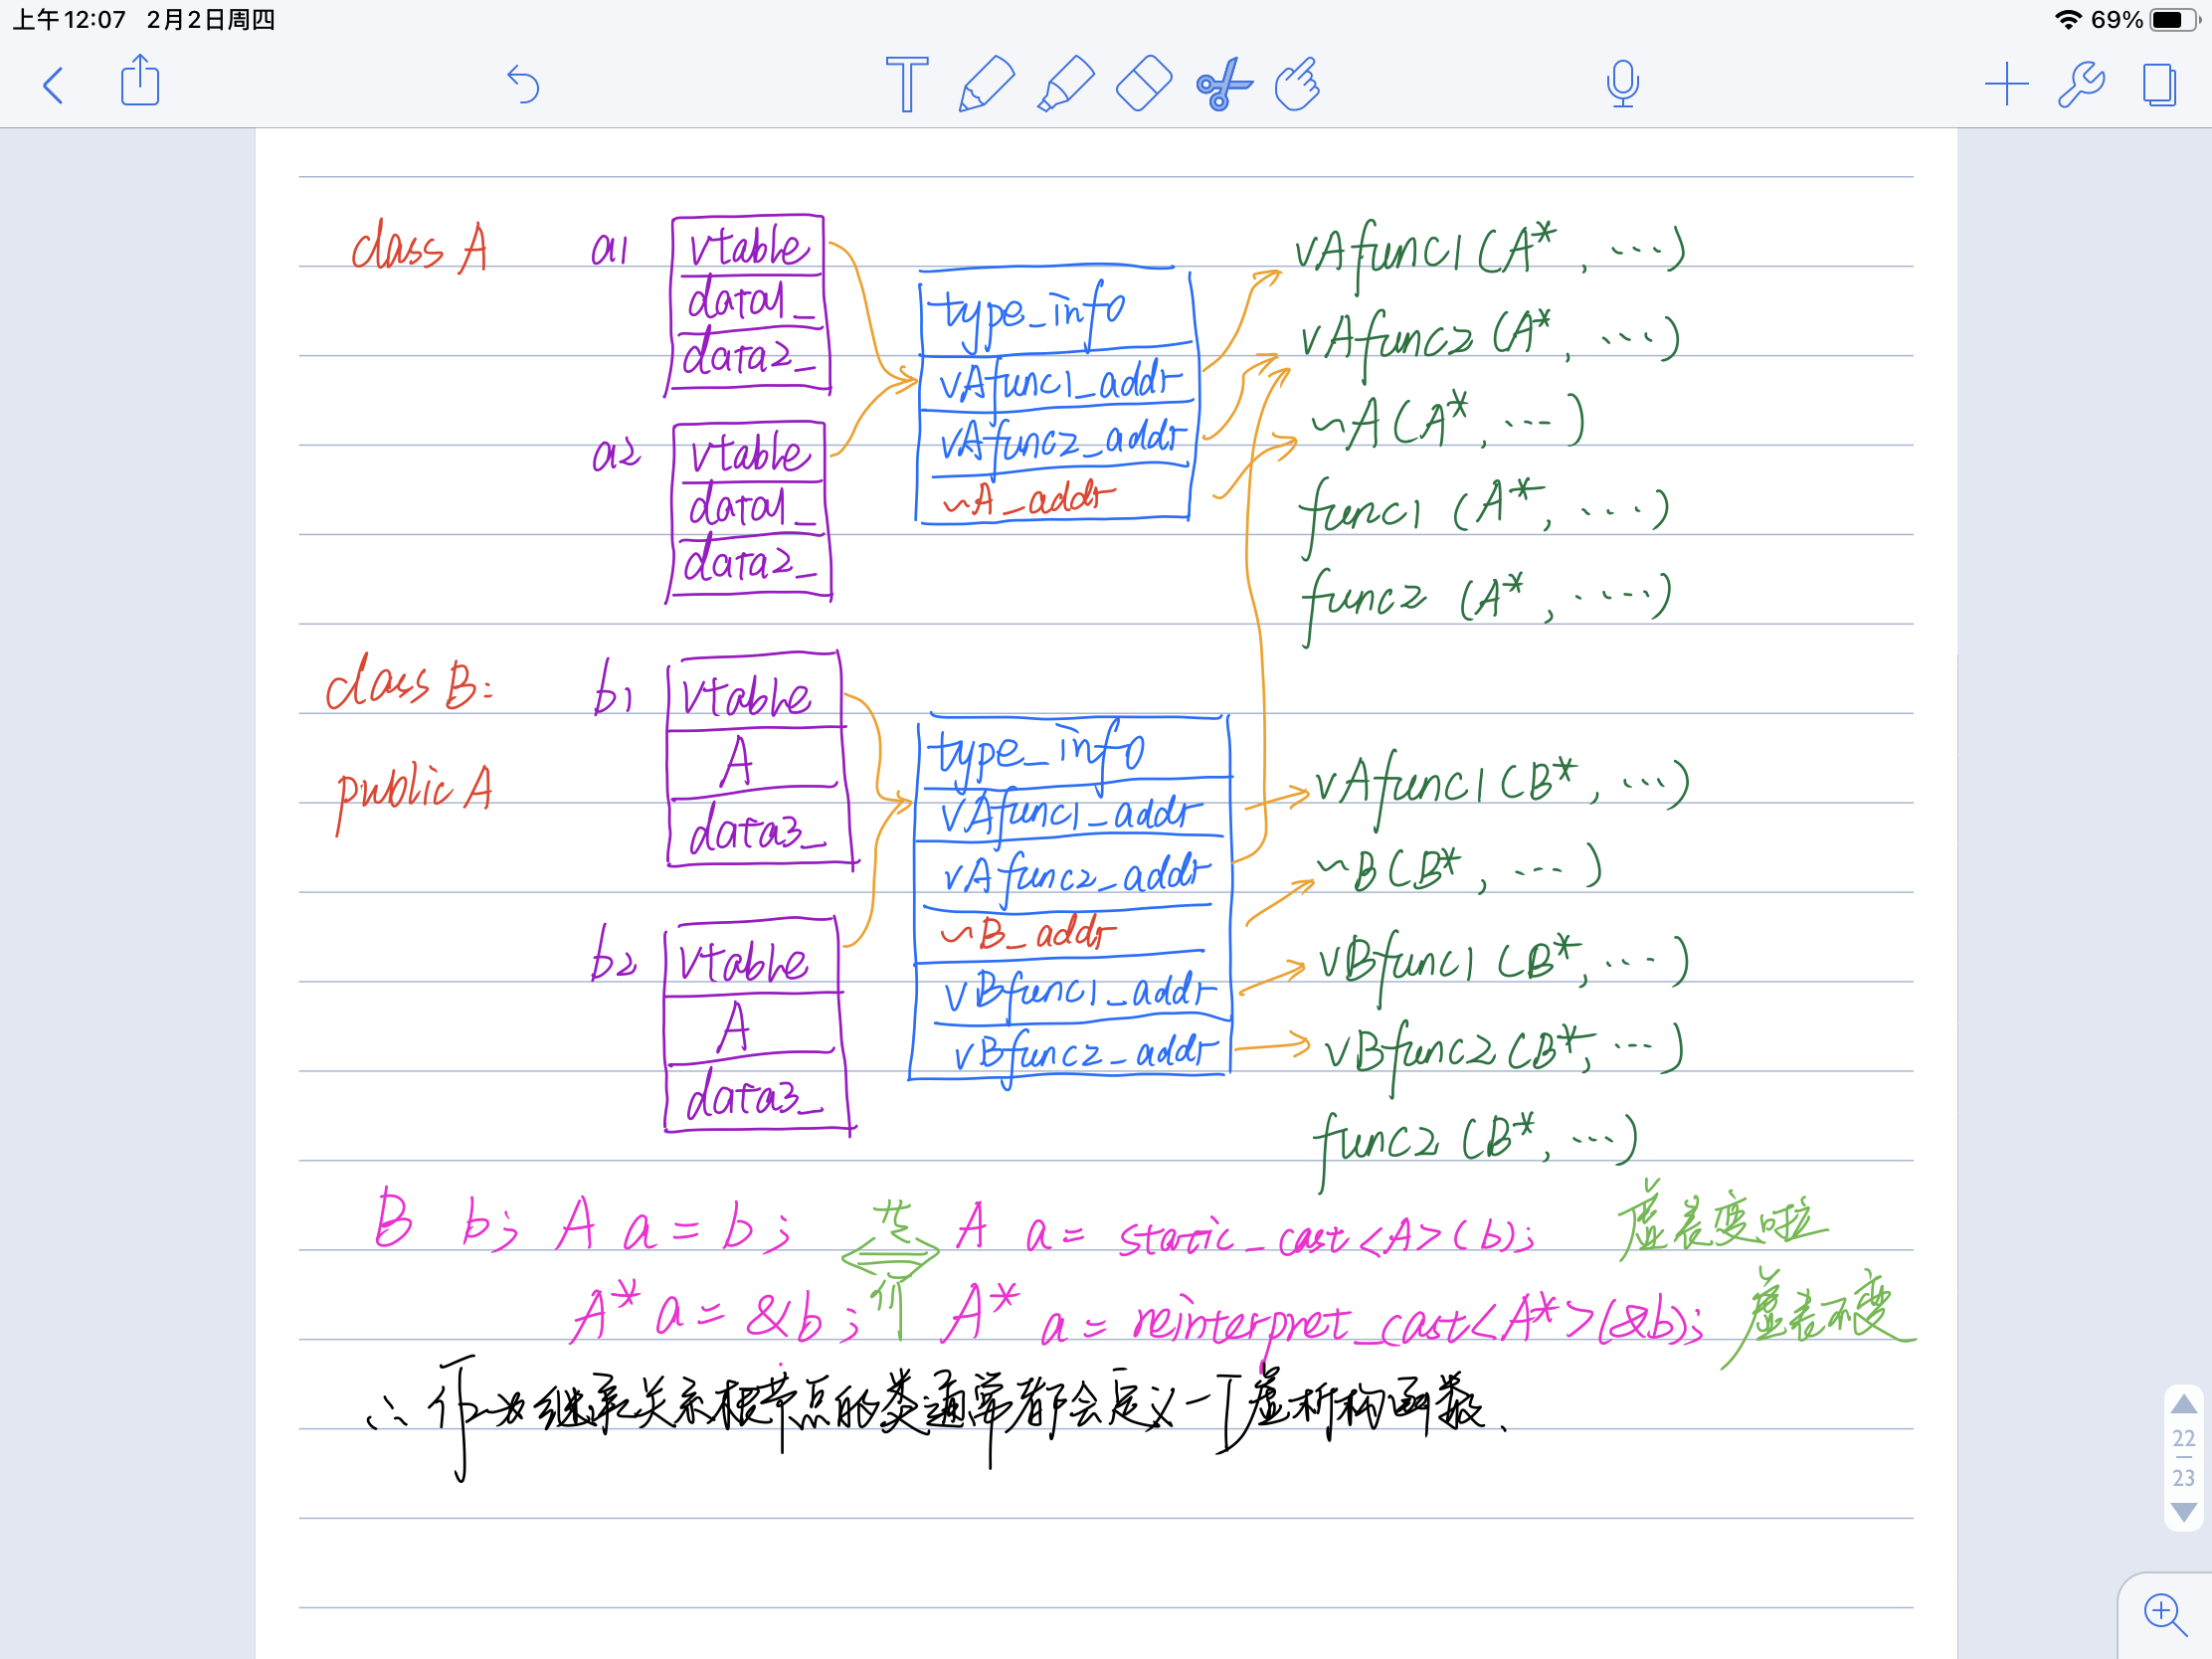 上午12:07 2月2日周四
69%
class A
a1
vtable
data1_
data2_
type_info
vAfunc1_addr
vAfunc2_addr
~A_addr
vAfunc1(A*, ...)
vAfunc2(A*, ...)
~A(A*, ...)
func1(A*, ...)
func2(A*, ....)
a2
vtable
data1_
data2_
class B:
public A
b1
vtable
A
data3_
type_info
vAfunc1_addr
vAfunc2_addr
~B_addr
vBfunc1_addr
vBfunc2_addr
vAfunc1(B*, ...)
~B(B*, ...)
vBfunc1(B*, ...)
vBfunc2(B*, ...)
func2(B*, ...)
b2
vtable
A
data3_
B b; A a = b; A a = static_cast<A>(b); 虚表变啦
A* a = &b; A* a = reinterpret_cast<A*>(&b); 虚表不变
∴ 作为继承关系根节点的类通常都会定义一个虚析构函数.
22
23